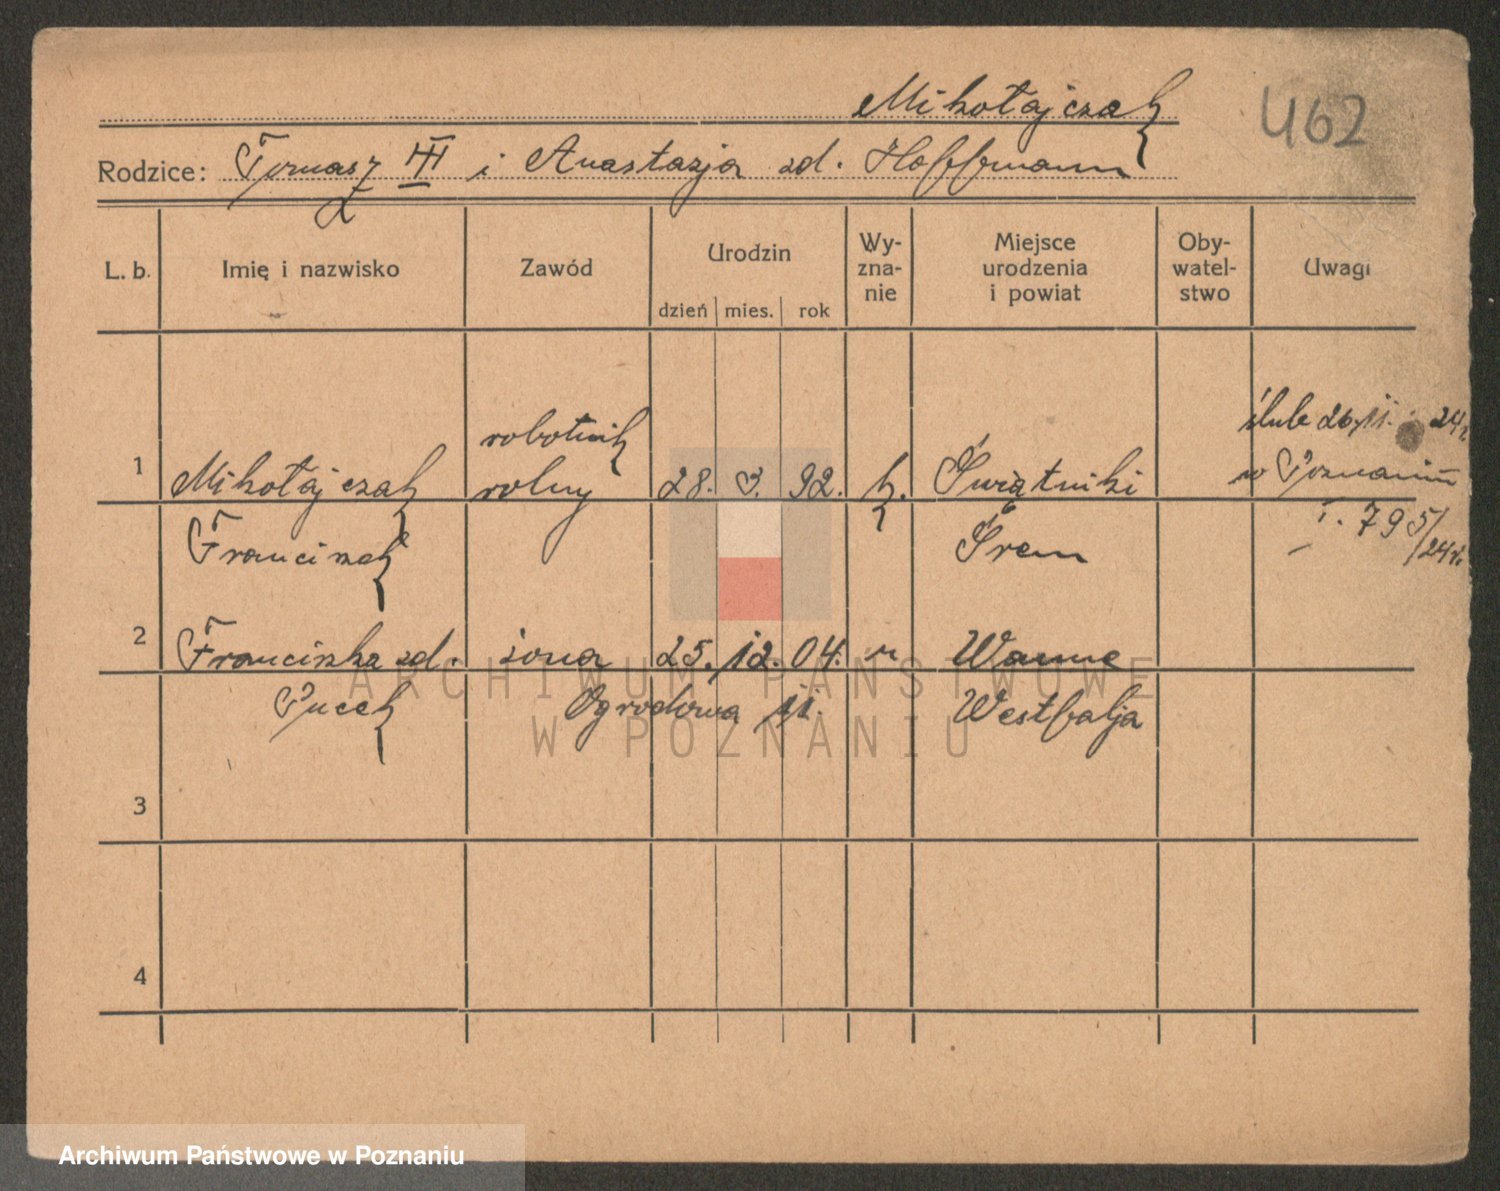 Mikołajczak
462
Rodzice: Tomasz III i Anastazja zd. Hoffmann
L. b. Imię i nazwisko Zawód Urodzin dzień mies. rok Wy-zna-nie Miejsce urodzenia i powiat Oby-watel-stwo Uwagi
ślub 26.11. 24r
robotnik
1 Mikołajczak rolny 28. 3. 92. k. Świątniki w Poznaniu
Franciszek Śrem I. 795/24r.
2 Franciszka zd. żona 25. 12. 04. " Wanne
Pucek Ogrodowa 11. Westfalja
3
4
ARCHIWUM PAŃSTWOWE
W POZNANIU
Archiwum Państwowe w Poznaniu